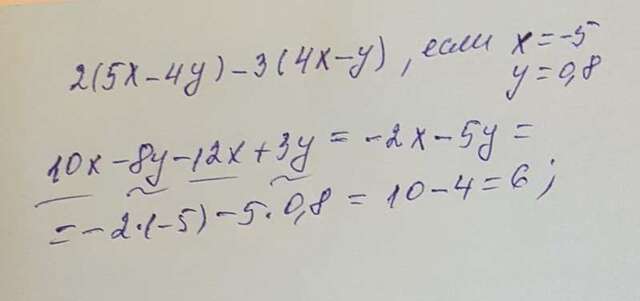 2(5x-4y)-3(4x-y), если x=-5
y=0,8
10x-8y-12x+3y=-2x-5y=
=-2·(-5)-5·0,8=10-4=6;